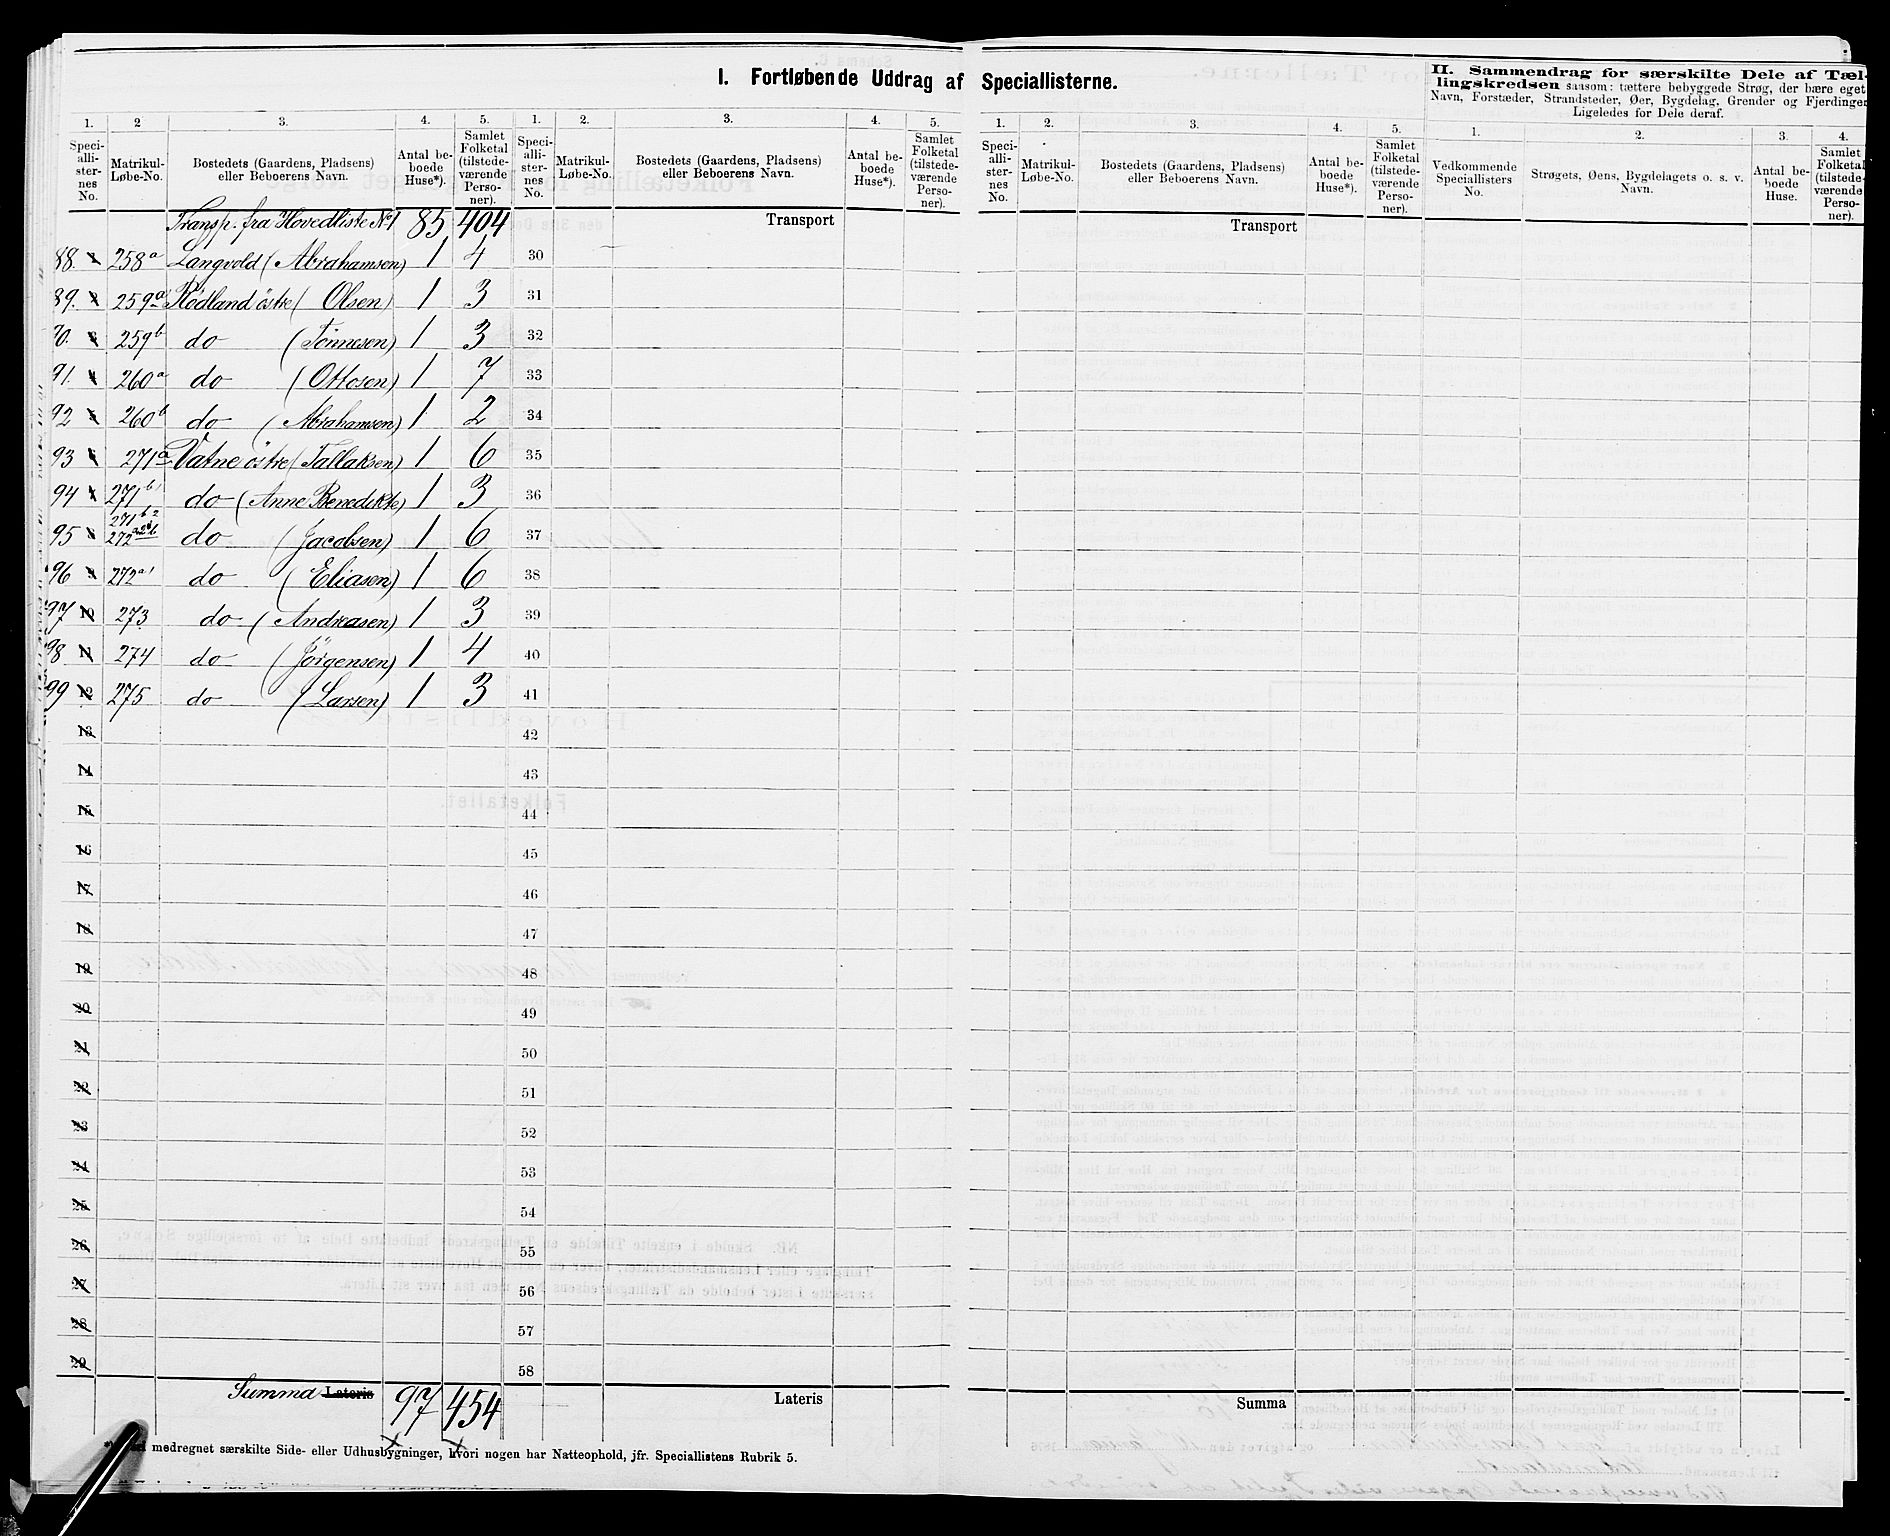 I. Fortløbende Uddrag af Speciallisterne.
II. Sammendrag for særskilte Dele af Tæl-
lingskredsen saasom: tættere bebyggede Strøg, der bære eget
Navn, Forstæder, Strandsteder, Øer, Bygdelag, Grender og Fjerdinger
Ligeledes for Dele deraf.
1. 2 3. 4. 5. 1. 2. 3. 4. 5. 1. 2. 3. 4. 5. 1. 2. 3. 4.
Speci-alli-ster-nes No. Matrikul-Løbe-No. Bostedets (Gaardens, Pladsens) eller Beboerens Navn. Antal be-boede Huse*). Samlet Folketal (tilstede-værende Perso-ner).
Speci-alli-ster-nes No. Matrikul-Løbe-No. Bostedets (Gaardens, Pladsens) eller Beboerens Navn. Antal be-boede Huse*). Samlet Folketal (tilstede-værende Perso-ner).
Speci-alli-ster-nes No. Matrikul-Løbe-No. Bostedets (Gaardens, Pladsens) eller Beboerens Navn. Antal be-boede Huse*). Samlet Folketal (tilstede-værende Perso-ner).
Vedkommende Speciallisters No. Strøgets, Øens, Bygdelagets o. s. v. Navn. Antal be-boede Huse. Samlet Folketal (tilstede-værende Perso-ner).
Transp. fra Hovedliste No 1 85 404 Transport Transport
88. 258a Langvold (Abrahamsen) 1 4 30
89. 259a Rödland östre (Olsen) 1 3 31
90. 259b do (Tönnesen) 1 3 32
91. 260a do (Ottosen) 1 7 33
92 260b do (Abrahamsen) 1 2 34
93 271a Vatne östre (Tallaksen) 1 6 35
94 271b1 do (Anne Benedikte) 1 3 36
271b2
95 272 do (Jacobsen) 1 6 37
96 272a1 do (Eliasen) 1 6 38
97 10 273 do (Andreasen) 1 3 39
98 11 274 do (Jörgensen) 1 4 40
99 12 275 do (Larsen) 1 3 41
13 42
14 43
15 44
16 45
17 46
18 47
19 48
20 49
21 50
22 51
23 52
24 53
25 54
26 55
27 56
28 57
29 58
Summa Lateris 97 454 Lateris Summa
medregnet særskilte Side- eller Udhusbygninger, hvori nogen har Natteophold, jfr. Speciallistens Rubrik 5.